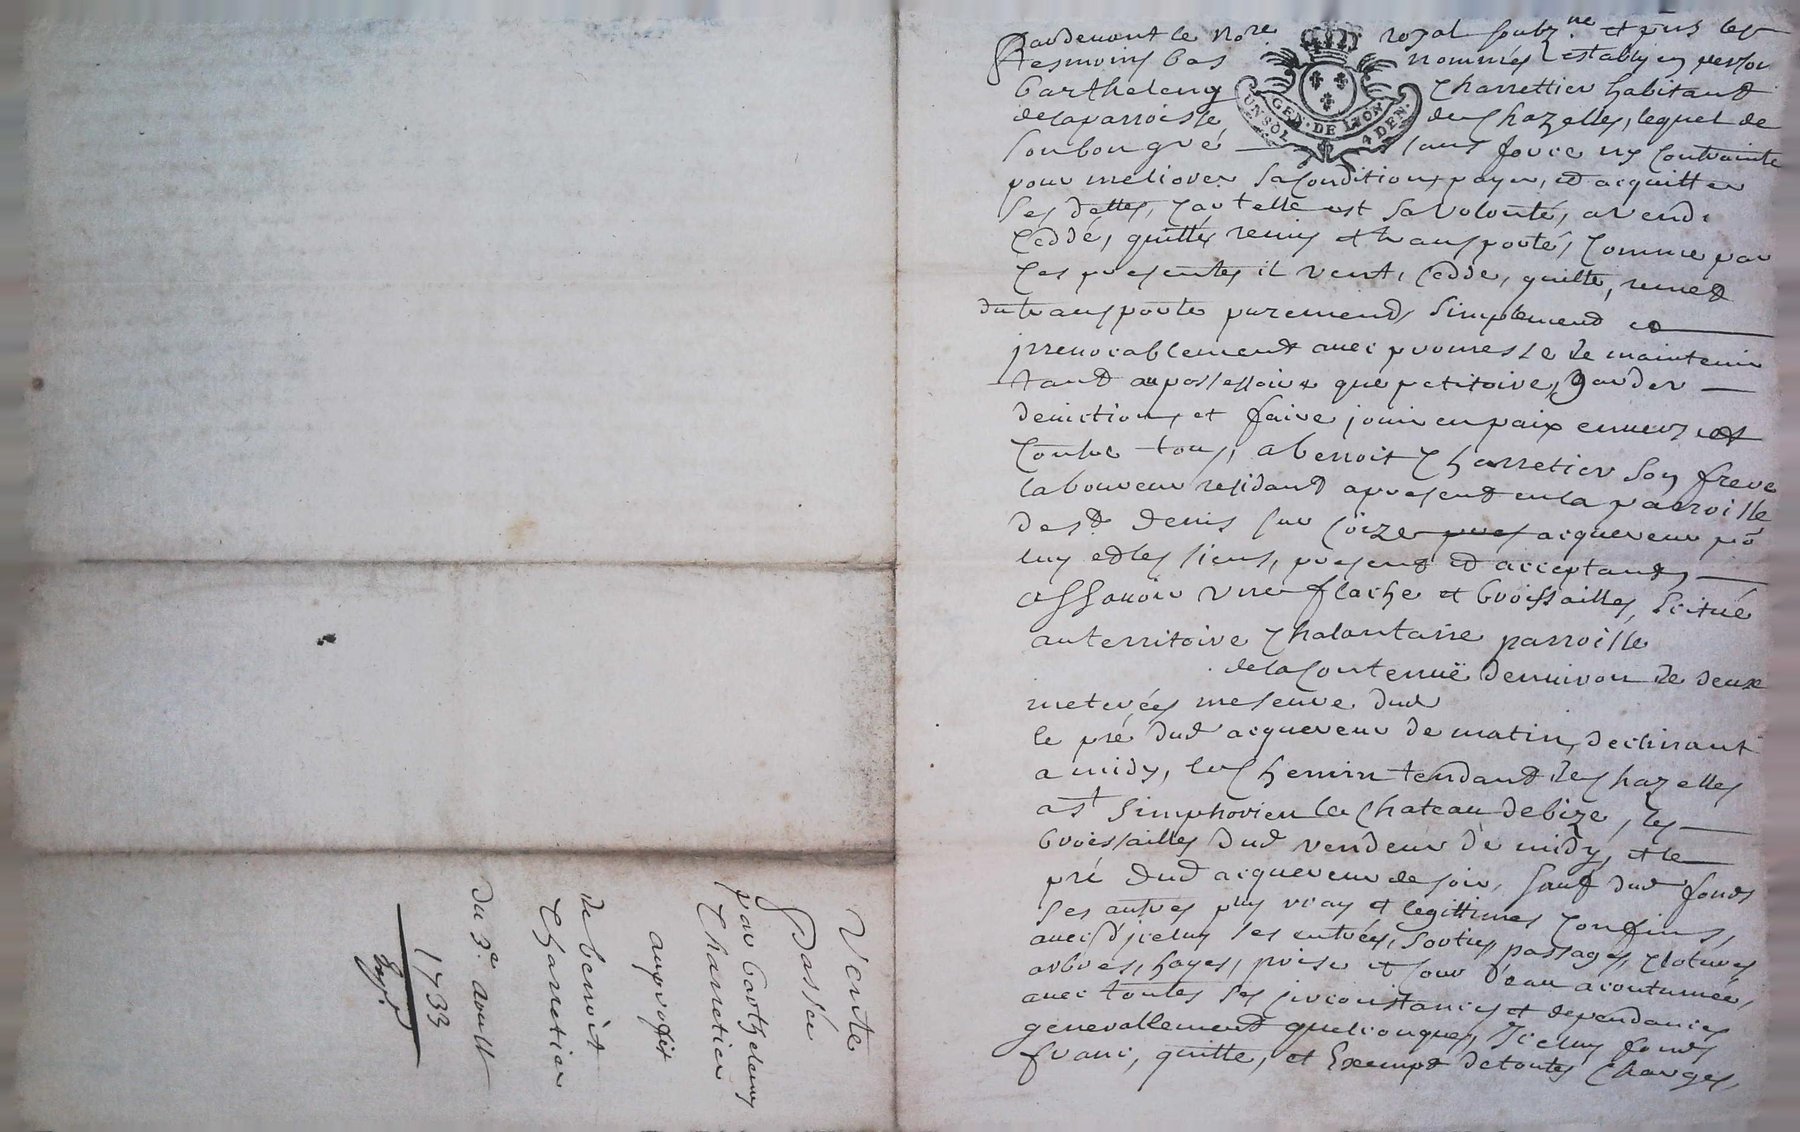 Pardevant le No.re royal soubz.ne et pnts les
tesmoins bas nommés establij en person
Barthelemy Charrettier habitant
de la parroisse de Chazelles, lequel de
son bon gré sans force ny contrainte
pour meliorer sa condition, payer, et acquitter
ses dettes, car telle est sa volonté, a vendu
ceddé, quitté, remis et transporté, comme par
ces presentes il vent, cedde, quitte, remet
et transporte purement, simplement et
jrrevocablement avec promesse de maintenir
tant au possessoire que petitoire, garder
deviction, et faire jouir en paix envers et
contre tous, a Benoit Charretier son frere
laboureur residant apresent en la parroisse
de st Denis sur Coize acquereur po
luy et les siens, present et acceptant,
assavoir une flache et broissailles, scitué
au territoire Chalantaire parroisse
de la contenuë denviron de deux
meterées mesure dud
le pré dud acquereur de matin declinant
a midy, le chemin tendant de Chazelles
a st Simphorien le Chateau de bize, les
broissailles dud vendeur de midy, et le
pré dud acquereur de soir, sauf dud fonds
ses autres plus vray et legittimes confins,
avec d'jceluy ses entrées, sorties, passages, clotures
arbres, hayes, prise et cour d'eau acoutumée,
avec toutes ses circonstances et dependances
generallement quelconques, Jceluy fonds
franc, quitte, et Exempt de toutes charges,
Vente
Passée
par Barthelemy
Charretier
au proffit
de benoit
Charretier
du 3e aoust
1733
GEN · DE LYON
UN SOL 4 DEN ·